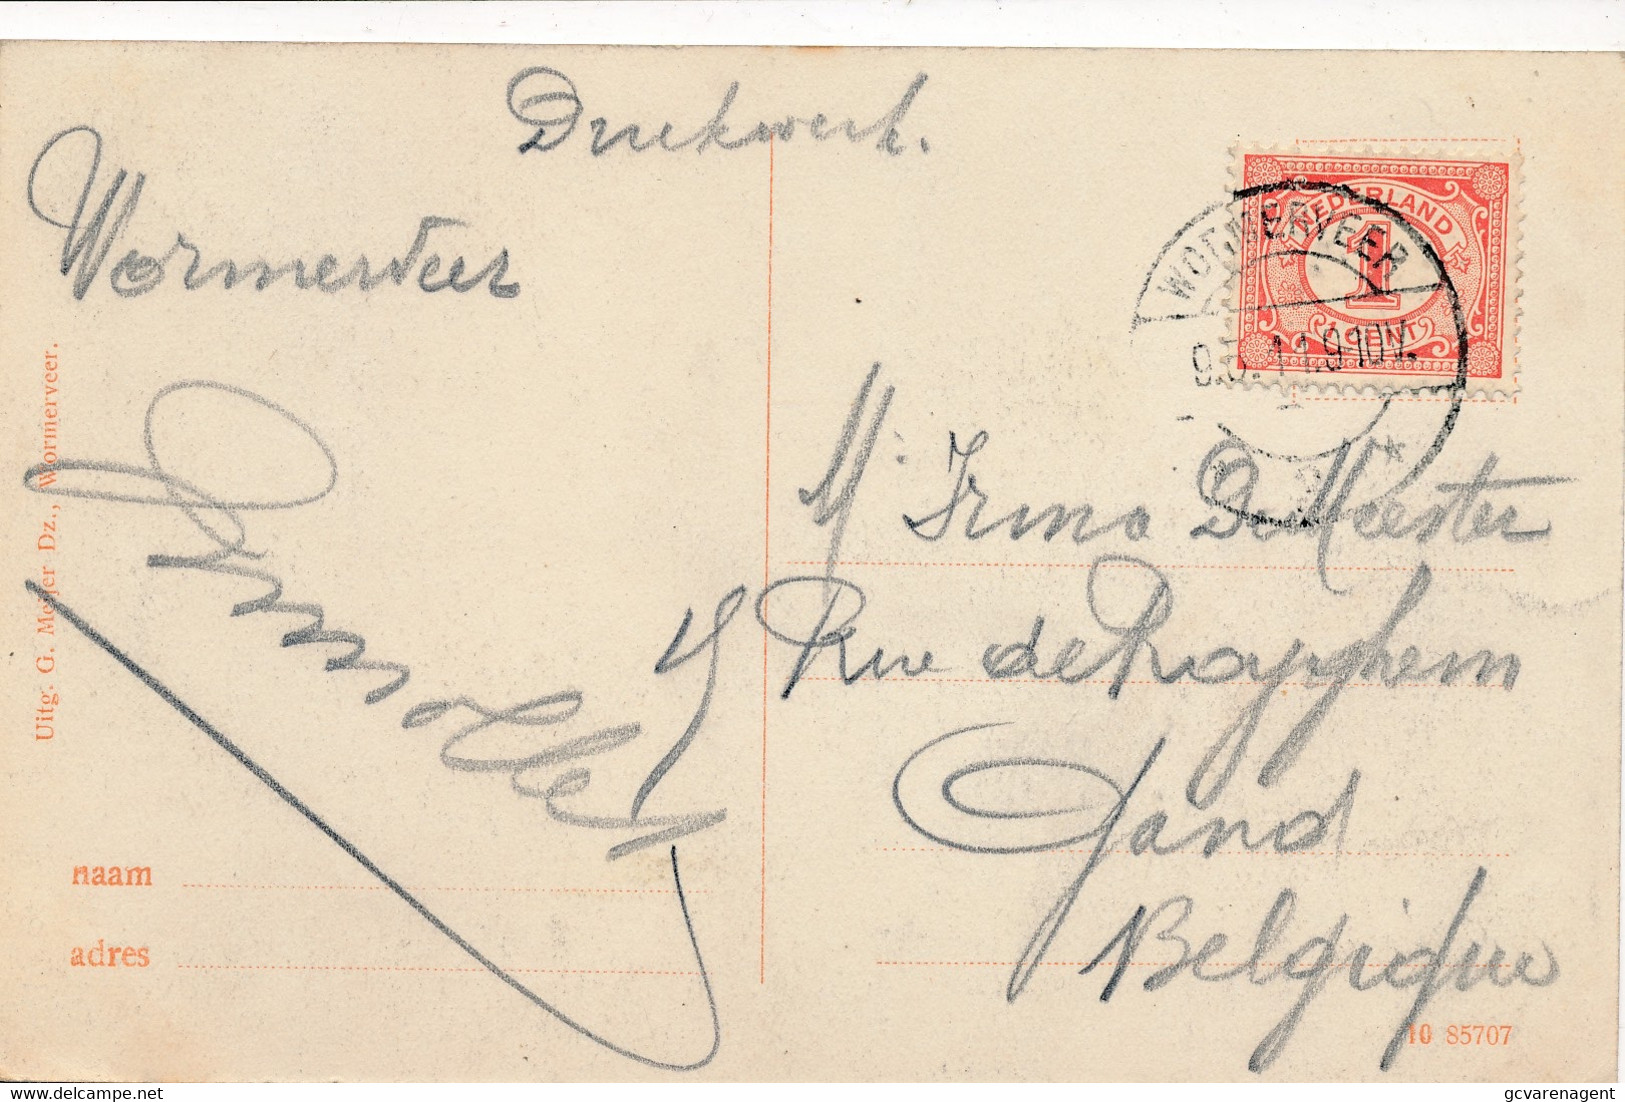 Drukwerk.
Wormerveer
Uitg: G. Meijer Dz., Wormerveer.
naam
adres
NEDERLAND
1
1 CENT
WORMERVEER
9-10V.
Irma De Meester
Rue de
Gand
Belgique
10 85707
delcampe.net
gcvarenagent